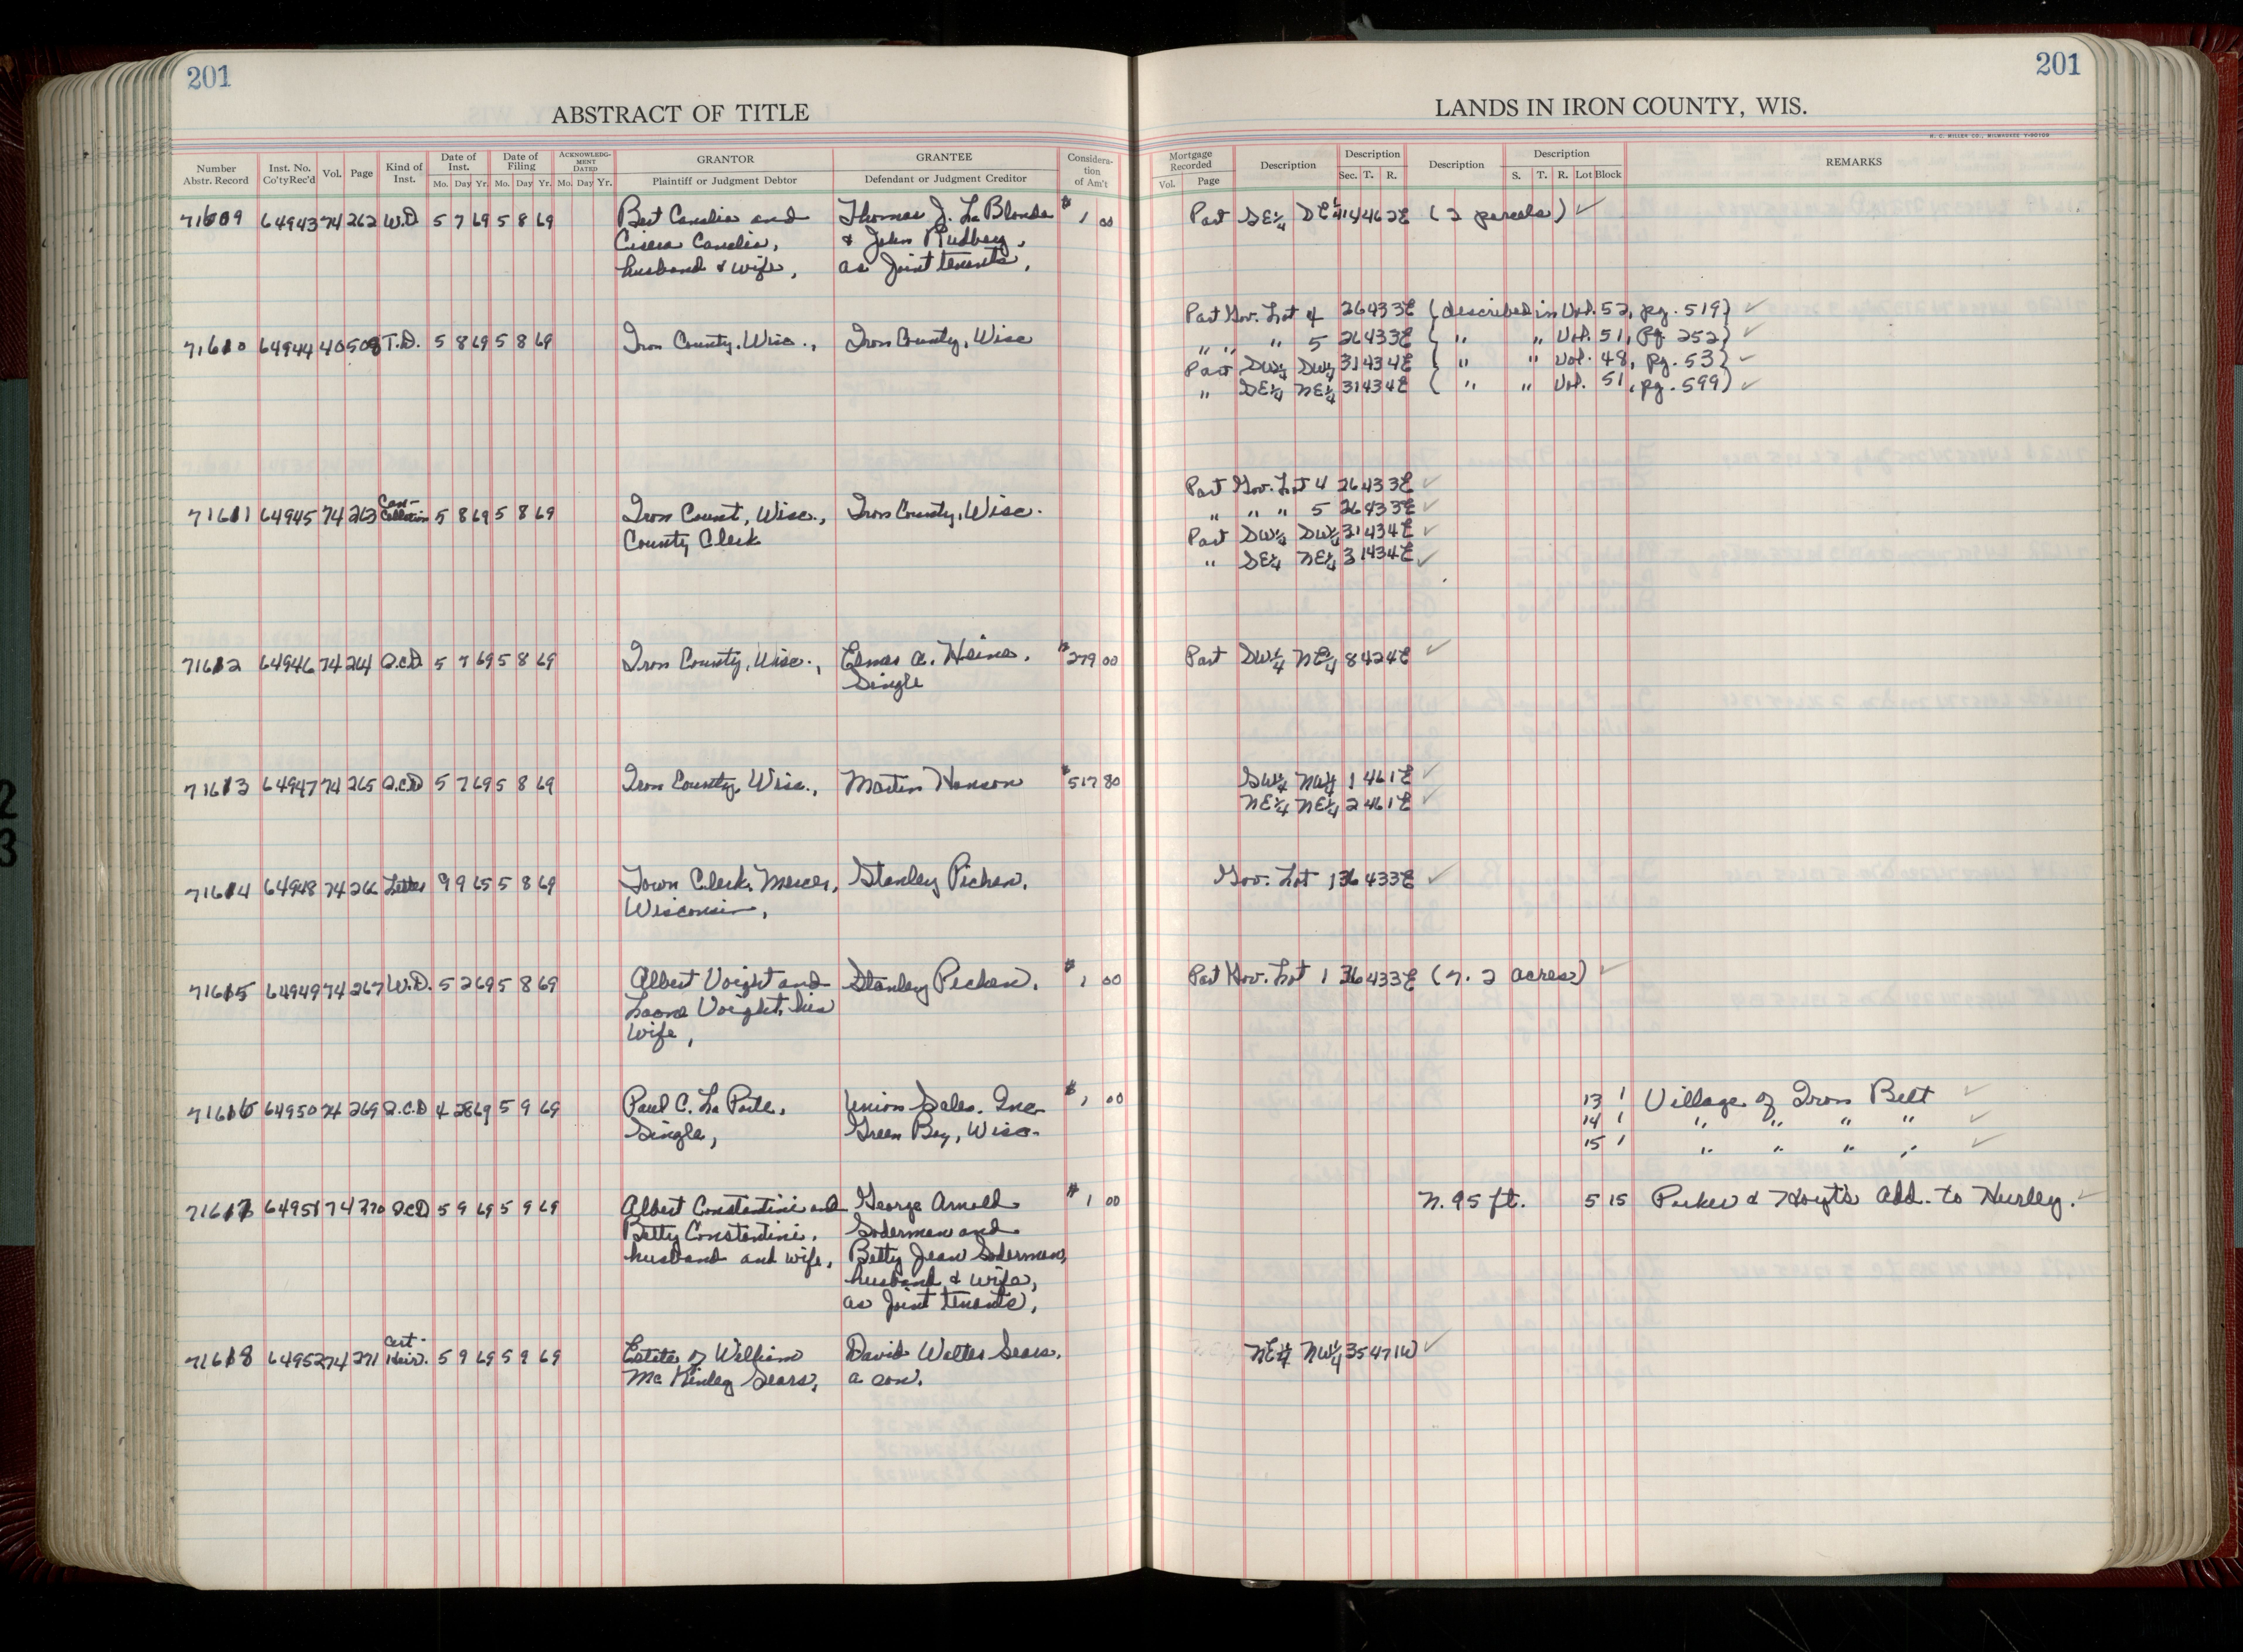 201
ABSTRACT OF TITLE
Number Abstr. Record
Inst. No. Co'ty Rec'd
Vol.
Page
Kind of Inst.
Date of Inst. Mo. Day Yr.
Date of Filing Mo. Day Yr.
ACKNOWLEDG-MENT DATED Mo. Day Yr.
GRANTOR Plaintiff or Judgment Debtor
GRANTEE Defendant or Judgment Creditor
Considera-tion of Am't
71609 64943 74 262 W.D 5 7 69 5 8 69 and Thomas J. La Blonde $1 00
& John Rudberg,
husband & wife, as Joint tenants,
71610 64944 40 508 T.D. 5 8 69 5 8 69 Iron County, Wisc., Iron County, Wisc
71611 64945 74 263 Can-cellation 5 8 69 5 8 69 Iron Count, Wisc., Iron County, Wisc.
County Clerk
71612 64946 74 264 Q.C.D 5 7 69 5 8 69 Iron County, Wisc., Elmer A. Heine, $279 00
Single
71613 64947 74 265 Q.C.D 5 7 69 5 8 69 Iron County, Wisc., Martin Hanson $517 80
71614 64948 74 266 Letter 9 9 65 5 8 69 Town Clerk, Mercer, Stanley Picken,
Wisconsin,
71615 64949 74 267 W.D. 5 2 69 5 8 69 Albert Voight and Stanley Picken, $1 00
Leona Voight, his
wife,
71616 64950 74 269 Q.C.D 4 28 69 5 9 69 Paul C. La Porte, Union Sales, Inc $1 00
Single, Green Bay, Wisc.
71617 64951 74 270 Q.C.D 5 9 69 5 9 69 Albert Constantini and George Arnold $1 00
Betty Constantini, Soderman and
husband and wife, Betty Jean Soderman,
husband & wife,
as Joint tenants,
71618 64952 74 271 Cert-Heir. 5 9 69 5 9 69 Estate of William David Walter Sears,
McKinley Sears, a son.
201
LANDS IN IRON COUNTY, WIS.
H. C. MILLER CO., MILWAUKEE Y-90109
Mortgage Recorded Vol. Page
Description
Description Sec. T. R.
Description
Description S. T. R. Lot Block
REMARKS
Part SE¼ SE¼ 14 46 2E (2 parcels) ✓
Part Gov. Lot 4 26 43 3E (described in Vol. 52, pg. 519) ✓
" " " 5 26 43 3E ( " " Vol. 51, Pg 252) ✓
Part SW¼ SW¼ 31 43 4E ( " " Vol. 48, pg. 53) ✓
" SE¼ NE¼ 31 43 4E ( " " Vol. 51, pg. 599) ✓
Part Gov. Lot 4 26 43 3E ✓
" " " 5 26 43 3E ✓
Part SW¼ SW¼ 31 43 4E ✓
" SE¼ NE¼ 31 43 4E ✓
Part SW¼ NE¼ 8 42 4E ✓
SW¼ NW¼ 1 46 1E ✓
NE¼ NE¼ 2 46 1E ✓
Gov. Lot 1 36 43 3E ✓
Part Gov. Lot 1 36 43 3E (N. 2 acres) ✓
13 1 Village of Iron Belt ✓
14 1 " " " " ✓
15 1 " " " " ✓
N. 95 ft. 5 15 Parker & Hoyt's Add. to Hurley. ✓
NE¼ NW¼ 35 47 1W ✓